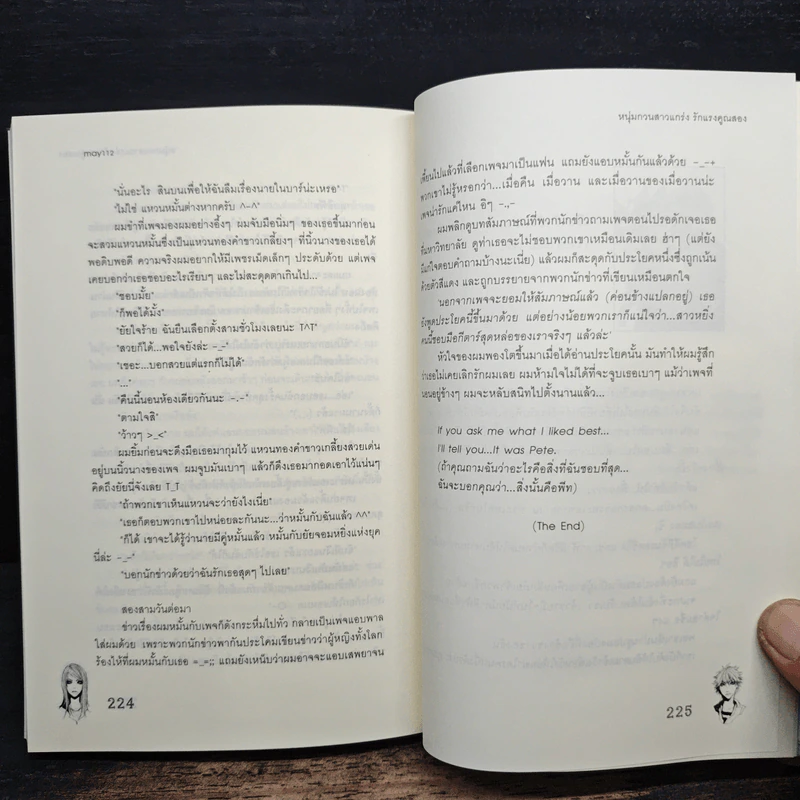 may112
"นั่นอะไร สินบนเพื่อให้ฉันลืมเรื่องนายในบาร์น่ะเหรอ"
"ไม่ใช่ แหวนหมั้นต่างหากครับ ^-^"
ผมขำที่เพจมองผมอย่างอึ้งๆ ผมจับมือนิ่มๆ ของเธอขึ้นมาก่อน
จะสวมแหวนหมั้นซึ่งเป็นแหวนทองคำขาวเกลี้ยงๆ ที่นิ้วนางของเธอได้
พอดิบพอดี ความจริงผมอยากให้มีเพชรเม็ดเล็กๆ ประดับด้วย แต่เพจ
เคยบอกว่าเธอชอบอะไรเรียบๆ และไม่สะดุดตาเกินไป...
"ชอบมั้ย"
"ก็พอได้มั้ง"
"ยัยใจร้าย ฉันยืนเลือกตั้งสามชั่วโมงเลยนะ T^T"
"สวยก็ได้...พอใจยังล่ะ -_-"
"เชอะ...บอกสวยแต่แรกก็ไม่ได้"
"..."
"คืนนี้นอนห้องเดียวกันนะ -.-"
"ตามใจสิ"
"ว้าวๆ >_<"
ผมยิ้มก่อนจะดึงมือเธอมากุมไว้ แหวนทองคำขาวเกลี้ยงสวยเด่น
อยู่บนนิ้วนางของเพจ ผมจูบมันเบาๆ แล้วก็ดึงเธอมากอดเอาไว้แน่นๆ
คิดถึงยัยนี่จังเลย T_T
"ถ้าพวกเขาเห็นแหวนจะว่ายังไงเนี่ย"
"เธอก็ตอบพวกเขาไปหน่อยละกันนะ...ว่าหมั้นกับฉันแล้ว ^^"
"ก็ได้ เขาจะได้รู้ว่านายมีคู่หมั้นแล้ว หมั้นกับยัยจอมหยิ่งแห่งยุค
นี่ล่ะ -_-"
"บอกนักข่าวด้วยว่าฉันรักเธอสุดๆ ไปเลย"
สองสามวันต่อมา
ข่าวเรื่องผมหมั้นกับเพจก็ดังกระหึ่มไปทั่ว กลายเป็นเพจแอบพาล
ใส่ผมด้วย เพราะพวกนักข่าวพากันประโคมเขียนข่าวว่าผู้หญิงทั้งโลก
ร้องไห้ที่ผมหมั้นกับเธอ =_=;; แถมยังเหน็บว่าผมอาจจะแอบเสพยาจน
224
หนุ่มกวนสาวแกร่ง รักแรงคูณสอง
เพี้ยนไปแล้วที่เลือกเพจมาเป็นแฟน แถมยังแอบหมั้นกันแล้วด้วย -_-+
พวกเขาไม่รู้หรอกว่า...เมื่อคืน เมื่อวาน และเมื่อวานของเมื่อวานน่ะ
เพจน่ารักแค่ไหน อิๆ -.,-
ผมพลิกดูบทสัมภาษณ์ที่พวกนักข่าวถามเพจตอนไปรอดักเจอเธอ
ที่มหาวิทยาลัย ดูท่าเธอจะไม่ชอบพวกเขาเหมือนเดิมเลย ฮ่าๆ (แต่ยัง
มีแก่ใจตอบคำถามบ้างนะเนี่ย) แล้วผมก็สะดุดกับประโยคหนึ่งซึ่งถูกเน้น
ด้วยตัวสีแดง และถูกบรรยายจากพวกนักข่าวที่เขียนเหมือนตกใจ
'นอกจากเพจจะยอมให้สัมภาษณ์แล้ว (ค่อนข้างแปลกอยู่) เธอ
ยังพูดประโยคนี้ขึ้นมาด้วย แต่อย่างน้อยพวกเราก็แน่ใจว่า...สาวหยิ่ง
คนนี้ชอบมือกีตาร์สุดหล่อของเราจริงๆ แล้วล่ะ'
หัวใจของผมพองโตขึ้นมาเมื่อได้อ่านประโยคนั้น มันทำให้ผมรู้สึก
ว่าเธอไม่เคยเลิกรักผมเลย ผมห้ามใจไม่ได้ที่จะจูบเธอเบาๆ แม้ว่าเพจที่
นอนอยู่ข้างๆ ผมจะหลับสนิทไปตั้งนานแล้ว...
If you ask me what I liked best...
I'll tell you...It was Pete.
(ถ้าคุณถามฉันว่าอะไรคือสิ่งที่ฉันชอบที่สุด...
ฉันจะบอกคุณว่า...สิ่งนั้นคือพีท)
(The End)
225